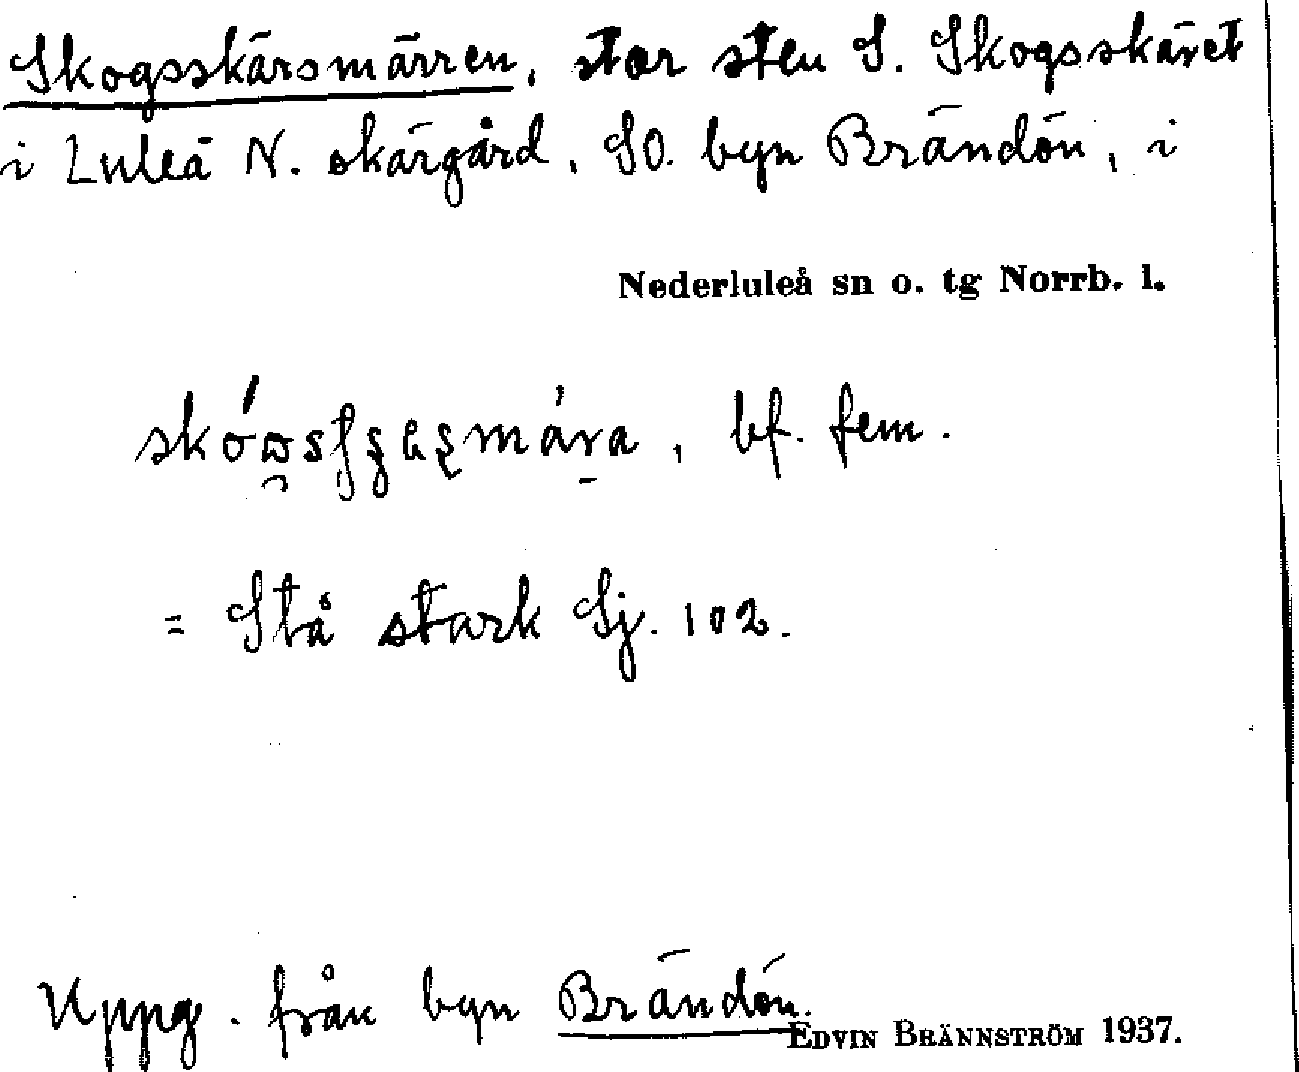 Skogsskärsmärren, stor sten S. Skogsskäret
i Luleå N. skärgård, SO. byn Brändön, i
Nederluleå sn o. tg Norrb. l.
bf. fem.
= Stå stark Sj. 102.
Uppg. från byn Brändön.
EDVIN BRÄNNSTRÖM 1937.